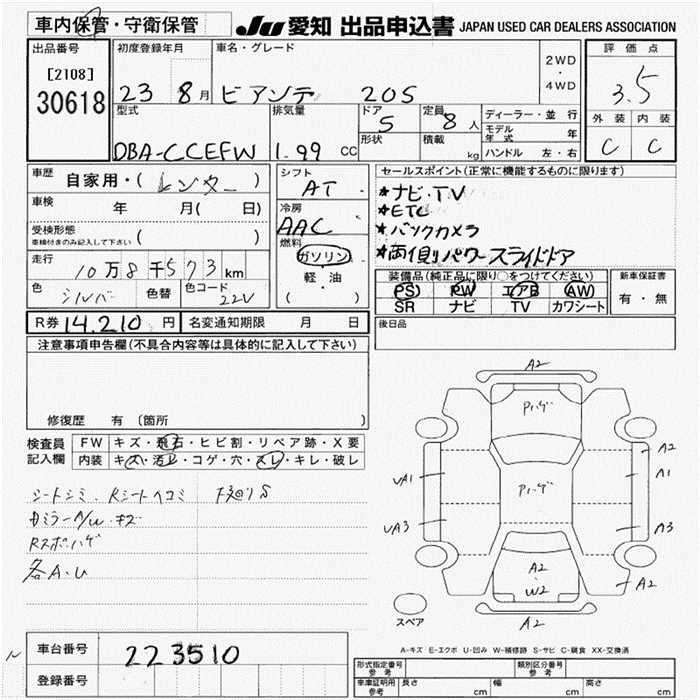 車内保管・守衛保管
JU 愛知 出品申込書 JAPAN USED CAR DEALERS ASSOCIATION
出品番号
[2108]
30618
初度登録年月
23 8月
車名・グレード
ビアンテ 20S
2WD
・
4WD
評価点
3.5
外装 内装
C C
型式
DBA-CCEFW
排気量
1.99 CC
ドア
5
形状
定員
8人
積載
kg
ディーラー・並行
モデル年式 年
ハンドル 左・右
車歴 自家用・(レンター)
車検 年 月( 日)
受検形態
車検付きのみ記入して下さい ( )
走行
10万8千573km
色
シルバー
色替
色コード
22V
シフト
AT
冷房
AAC
燃料
ガソリン
・
軽・油
( )
セールスポイント(正常に機能するものに限ります)
★ナビ・TV
★ETC
★バックカメラ
★両側パワースライドドア
装備品(純正品に限り○をつけてください)
PS PW エアB AW
SR ナビ TV カワシート
新車保証書
有・無
R券 14.210円
名変通知期限 月 日
後日品
注意事項申告欄(不具合内容等は具体的に記入して下さい)
修復歴 有 (箇所 )
検査員記入欄
FW キズ・飛石・ヒビ割・リペア跡・X要
内装 キズ・汚レ・コゲ・穴・スレ・キレ・破レ
シートシミ・Rシートヘコミ
ドミラーA/U
Rスポハゲ
各A・U
A2
Pハゲ
Pハゲ
A2
W2
UA1
UA3
A2
A1
A3
A2
A2
スペア
A-キズ E-エクボ U-凹み W-補修跡 S-サビ C-腐食 XX-交換済
車台番号 223510
登録番号
形式指定番号 参考
類別区分番号 参考
車庫証明用 参考 長さ cm 幅 cm 高さ cm